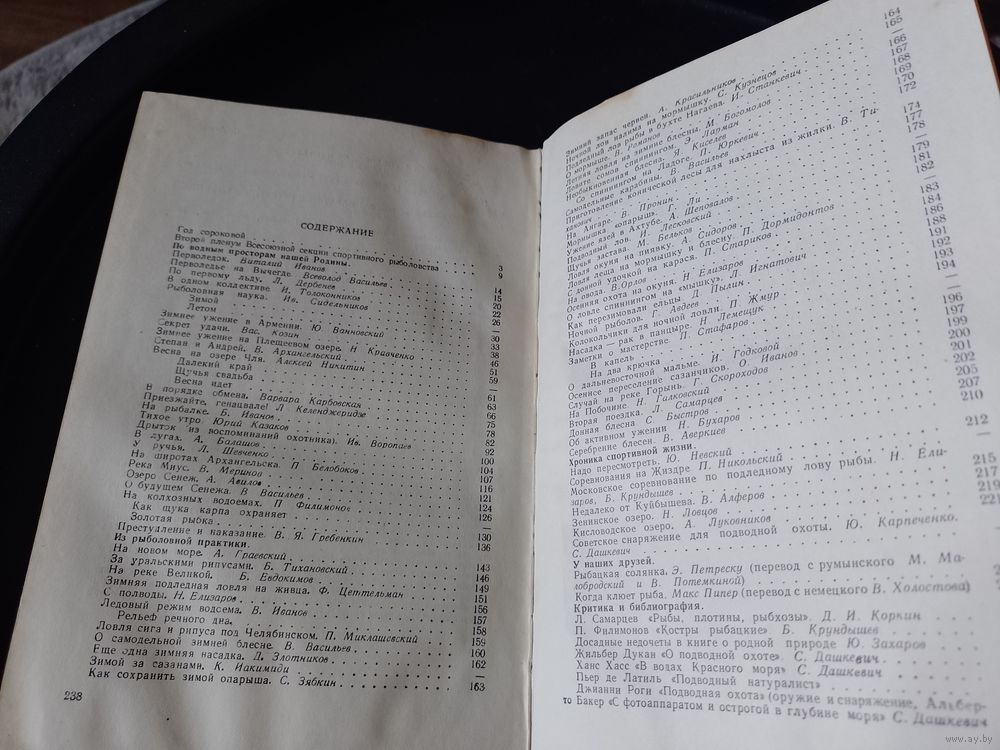 СОДЕРЖАНИЕ
Год сороковой
Второй пленум Всесоюзной секции спортивного рыболовства 3
По водным просторам нашей Родины. 9
Перволедок. Виталий Иванов
Перволедье на Вычегде. Всеволод Васильев 14
По первому льду. Л. Дербенев 15
В одном коллективе. И. Толоконников 20
Рыболовная наука. Ив. Сидельников 22
Зимой 26
Летом —
Зимнее ужение в Армении. Ю. Ванновский 30
Секрет удачи. Вас. Козин 33
Зимнее ужение на Плещеевом озере. Н Кравченко 38
Степан и Андрей. В. Архангельский 46
Весна на озере Чля. Алексей Никитин 51
Далекий край 59
Щучья свадьба —
Весна идет
В порядке обмена. Варвара Карбовская 61
Приезжайте, генацвале! Л Келенджеридзе 63
На рыбалке. Б. Иванов 66
Тихое утро. Юрий Казаков 75
Дрытэк из воспоминаний охотника). Ив. Воропаев 78
В лугах. А. Балашов 82
У ручья. Л. Шевченко 92
На широтах Архангельска. П Белобоков 100
Река Миус. В. Меринов 104
Озеро Сенеж. А. Авилов 107
О будущем Сенежа. В Васильев 116
На колхозных водоемах. П Филимонов 121
Как щука карпа охраняет 124
Золотая рыбка 126
Преступление и наказание. В. Я. Гребенкин 130
Из рыболовной практики. 136
На новом море. А. Граевский
За уральскими рипусами. Б. Тихановский 143
На реке Великой. Б. Евдокимов 146
Зимняя подледная ловля на живца. Ф. Цептельман 149
С полводы. Н. Елизаров 151
Ледовый режим водоема. В. Иванов 156
Рельеф речного дна 157
Ловля сига и рипуса под Челябинском. П. Миклашевский 158
О самодельной зимней блесне. В. Васильев 159
Еще одна зимняя насадка. Д. Злотников 160
Зимой за сазанами. К. Иакимиди 162
Как сохранить зимой опарыша. С. Зябкин —
163
238
Зимний запас червей. А. Красильников 164
Ночной лов налима на мормышку. С. Кузнецов 165
Подледный лов рыбы в бухте Нагаева. И. Станкевич —
О мормышке. В. Романов 166
Летняя ловля на зимние блесны. М. Богомолов 167
Ловите сомов спиннингом. Э. Ларман 168
Необыкновенная блесна. Я. Киселев 169
Со спиннингом на Ладоге. И. Юркевич 170
Самодельные карабины. В. Васильев 172
Приготовление конической лесы для нахлыста из жилки. В. Ти-
ханович 174
На Ангаре. В. Пронин 177
Мормышка «опарыш». Г. Ли 178
Ужение язей в Ахтубе. А. Шеповалов —
Подводный лов. И. Лесковский 179
Щучья застава. М. Бельков 181
Ловля окуня на пиявку. А. Сидоров 182
Ловля леща на мормышку и блесну. П. Дормидонтов —
С донной удочкой на карася. П. Стариков 183
На овода. В. Орлов 184
Осенняя охота на окуня. Н. Елизаров 186
О ловле спиннингом на «мышку». Л. Игнатович 188
Как перезимовали ельцы. Д. Пылин 191
Ночной рыболов. Г. Авдеев 192
Колокольчики для ночной ловли. П. Жмур 193
Насадка — рак в панцыре. Н. Лемещук 194
Заметки о мастерстве. П. Стафаров —
В капель
На два крючка 196
О дальневосточной мальме. И. Годковой 197
Осеннее переселение сазанчиков. О. Иванов 199
Случай на реке Горынь. Г. Скороходов 200
На Побочине. Н. Галковский 201
Вторая поездка. Л. Самарцев 202
Донная блесна С. Быстров 205
Об активном ужении Н. Бухаров 207
Серебрение блесен. В. Аверкиев 210
Хроника спортивной жизни.
Надо пересмотреть. Ю. Невский 212
Соревнования на Жиздре П. Никольский —
Московское соревнование по подледному лову рыбы. Н. Ели-
заров, Б. Крундышев 215
Недалеко от Куйбышева. В. Алферов 217
Зенинское озеро. Н. Ловцов 219
Кисловодское озеро. А. Луковников 221
Советское снаряжение для подводной охоты. Ю. Карпеченко.
С. Дашкевич
У наших друзей.
Рыбацкая солянка. Э. Петреску (перевод с румынского М. Ма-
лобродский и В. Потемкиной)
Когда клюет рыба. Макс Пипер (перевод с немецкого В. Холостова)
Критика и библиография.
Л. Самарцев «Рыбы, плотины, рыбхозы». Д. И. Коркин
П. Филимонов «Костры рыбацкие» Б. Крундышев
Досадные недочеты в книге о родной природе Ю. Захаров
Жильбер Дукан «О подводной охоте». С. Дашкевич
Ханс Хасс «В водах Красного моря» С. Дашкевич
Пьер де Латиль «Подводный натуралист»
Джианни Роги «Подводная охота» (оружие и снаряжение, Альбер-
то Бакер «С фотоаппаратом и острогой в глубине моря» С. Дашкевич
www.ay.by